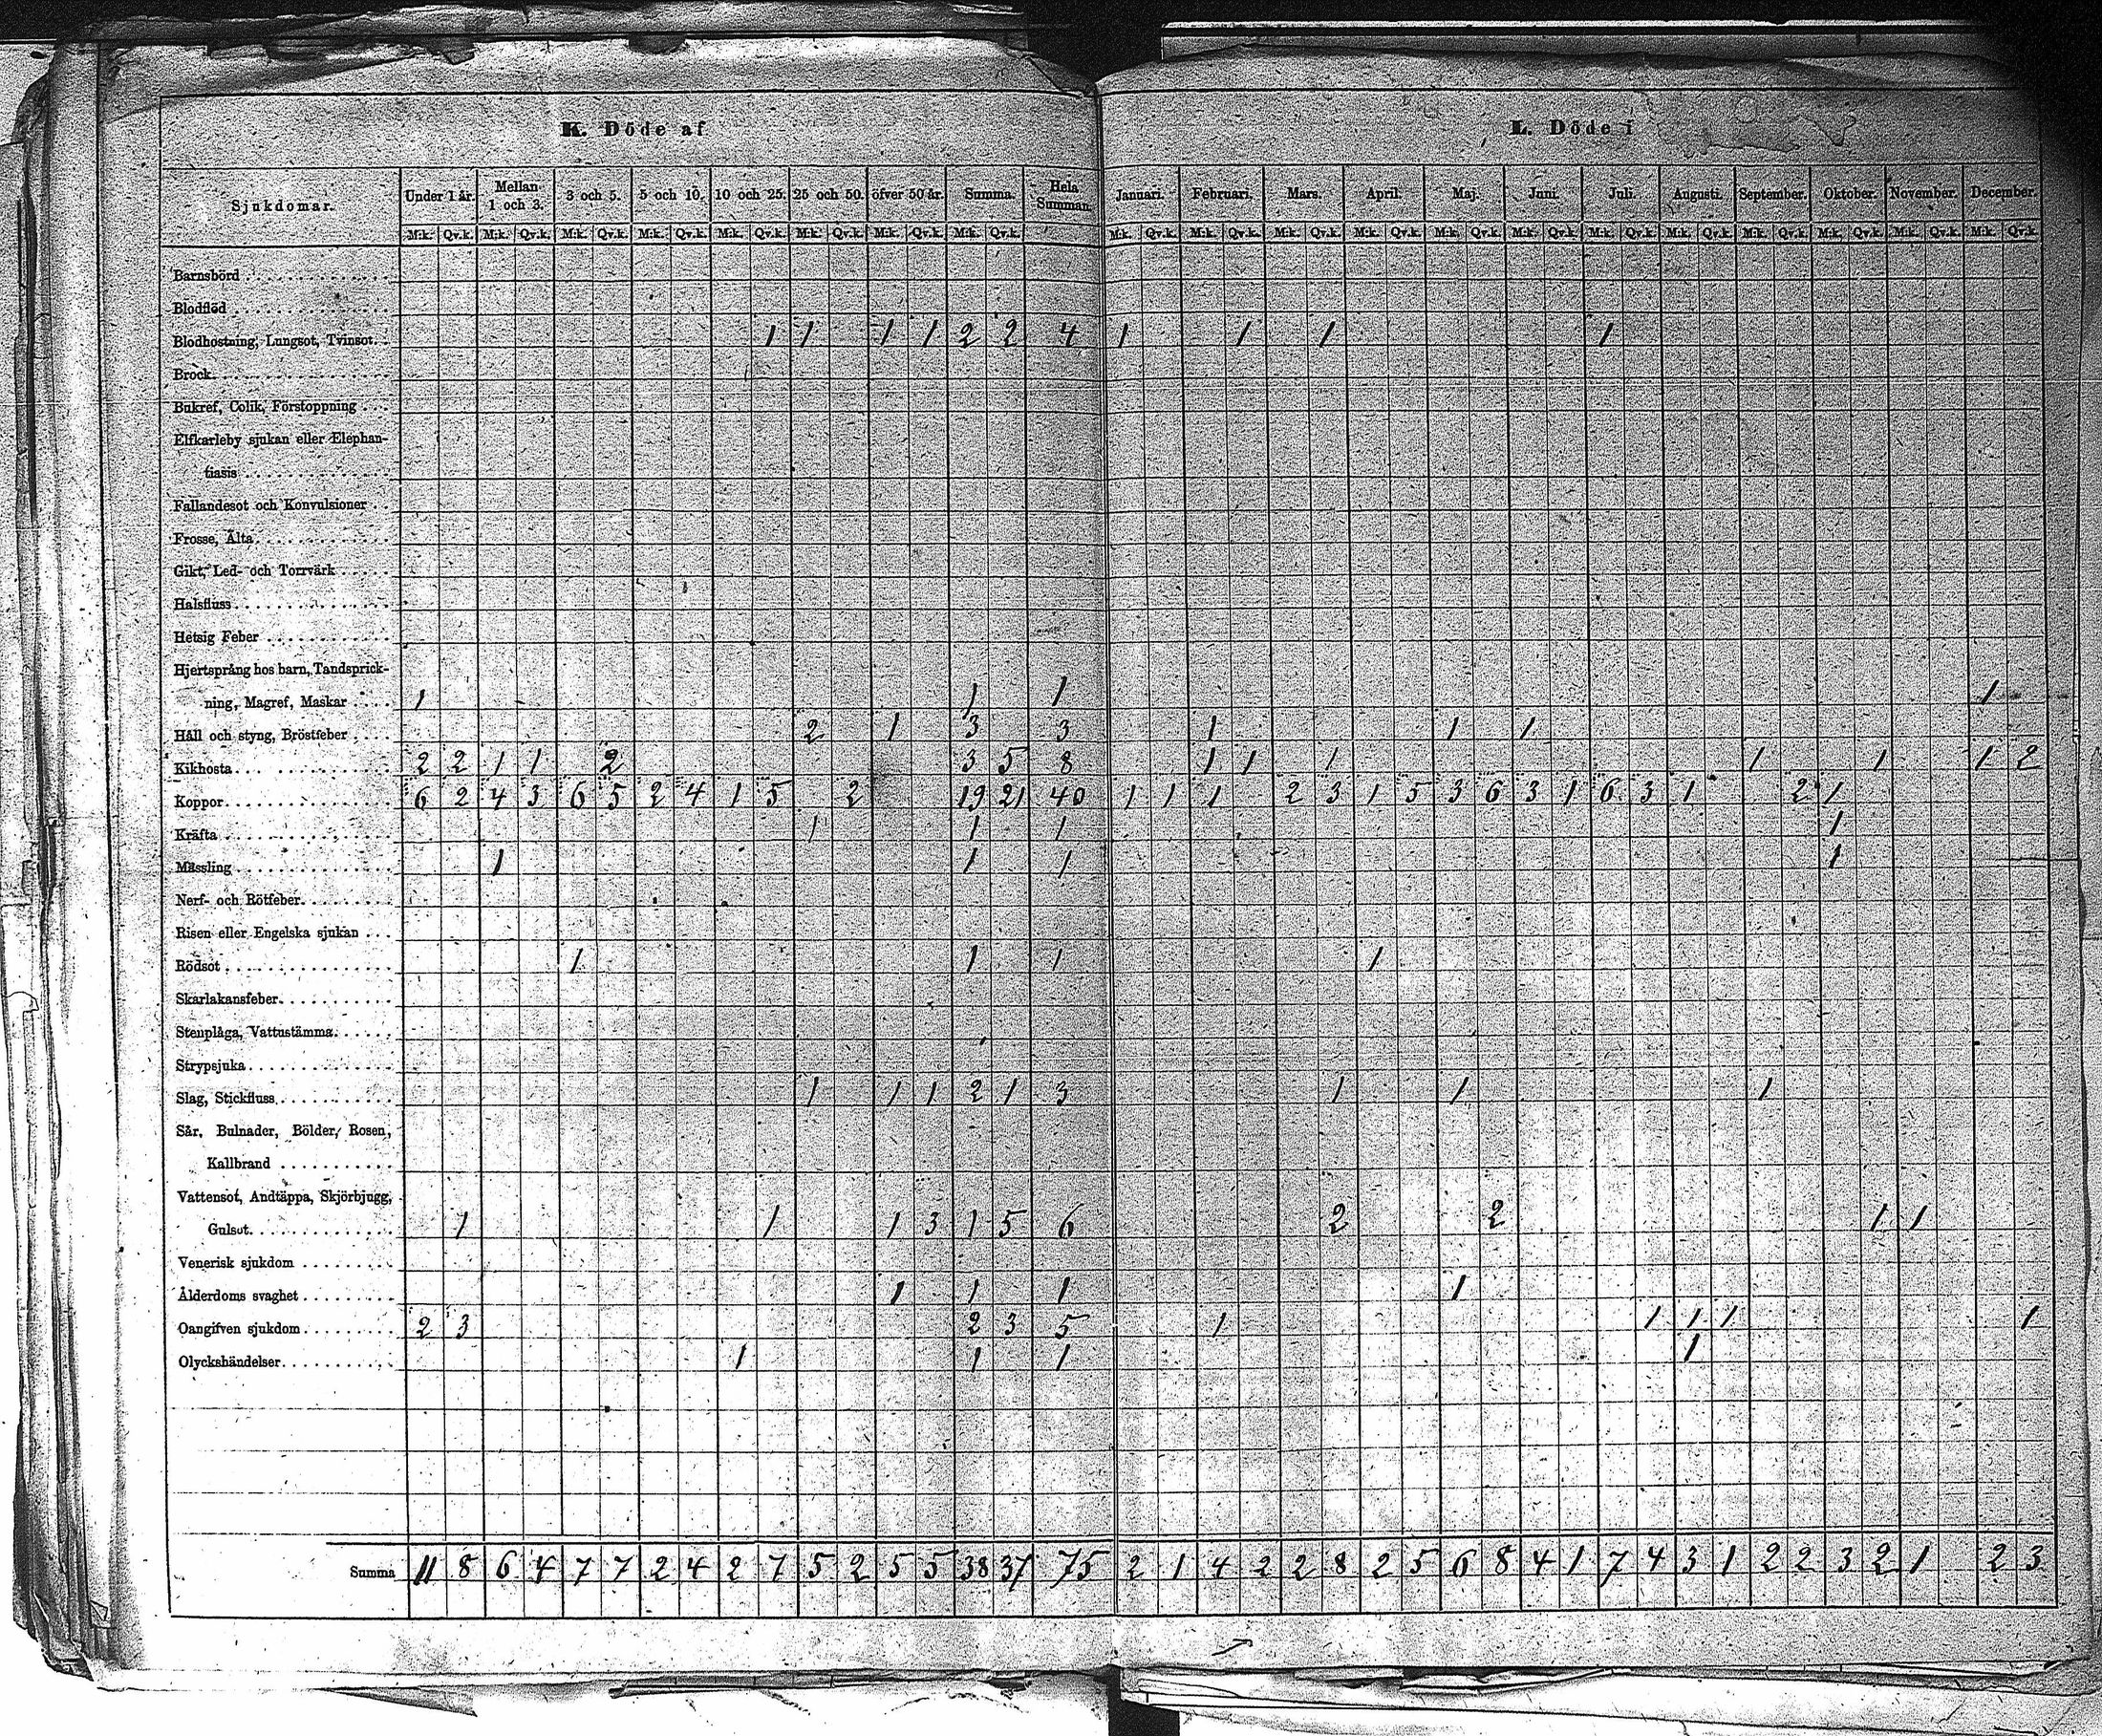 K. Döde af L. Döde i
Sjukdomar. Under 1 år. Mellan 1 och 3. 3 och 5. 5 och 10. 10 och 25. 25 och 50. öfver 50 år. Summa. Hela Summan. Januari. Februari. Mars. April. Maj. Juni. Juli. Augusti. September. Oktober. November. December.
M:k. Qv.k. M:k. Qv.k. M:k. Qv.k. M:k. Qv.k. M:k. Qv.k. M:k. Qv.k. M:k. Qv.k. M:k. Qv.k. M:k. Qv.k. M:k. Qv.k. M:k. Qv.k. M:k. Qv.k. M:k. Qv.k. M:k. Qv.k. M:k. Qv.k. M:k. Qv.k. M:k. Qv.k. M:k. Qv.k. M:k. Qv.k. M:k. Qv.k.
Barnsbörd
Blodflöd
Blodhostning, Lungsot, Tvinsot. 1 1 1 1 2 2 4 1 1 1 1
Brock
Bukref, Colik, Förstoppning
Elfkarleby sjukan eller Elephan-
tiasis
Fallandesot och Konvulsioner
Frosse, Älta
Gikt, Led- och Torrvärk
Halsfluss
Hetsig Feber
Hjertsprång hos barn, Tandsprick-
ning, Magref, Maskar 1 1 1 1
Håll och styng, Bröstfeber 2 1 3 3 1 1 1
Kikhosta 2 2 1 1 2 3 5 8 1 1 1 1 1 1 2
Koppor 6 2 4 3 6 5 2 4 1 5 2 19 21 40 1 1 1 2 3 1 5 3 6 3 1 6 3 1 2 1
Kräfta 1 1 1 1
Mässling 1 1 1 1
Nerf- och Rötfeber
Risen eller Engelska sjukan
Rödsot 1 1 1 1
Skarlakansfeber
Stenplåga, Vattustämma
Strypsjuka
Slag, Stickfluss 1 1 1 2 1 3 1 1 1
Sår, Bulnader, Bölder, Rosen,
Kallbrand
Vattensot, Andtäppa, Skjörbjugg,
Gulsot 1 1 1 3 1 5 6 2 2 1 1
Venerisk sjukdom
Ålderdoms svaghet 1 1 1 1
Oangifven sjukdom 2 3 2 3 5 1 1 1 1 1
Olyckshändelser 1 1 1 1
Summa 11 8 6 4 7 7 2 4 2 7 5 2 5 5 38 37 75 2 1 4 2 2 8 2 5 6 8 4 1 7 4 3 1 2 2 3 2 1 2 3